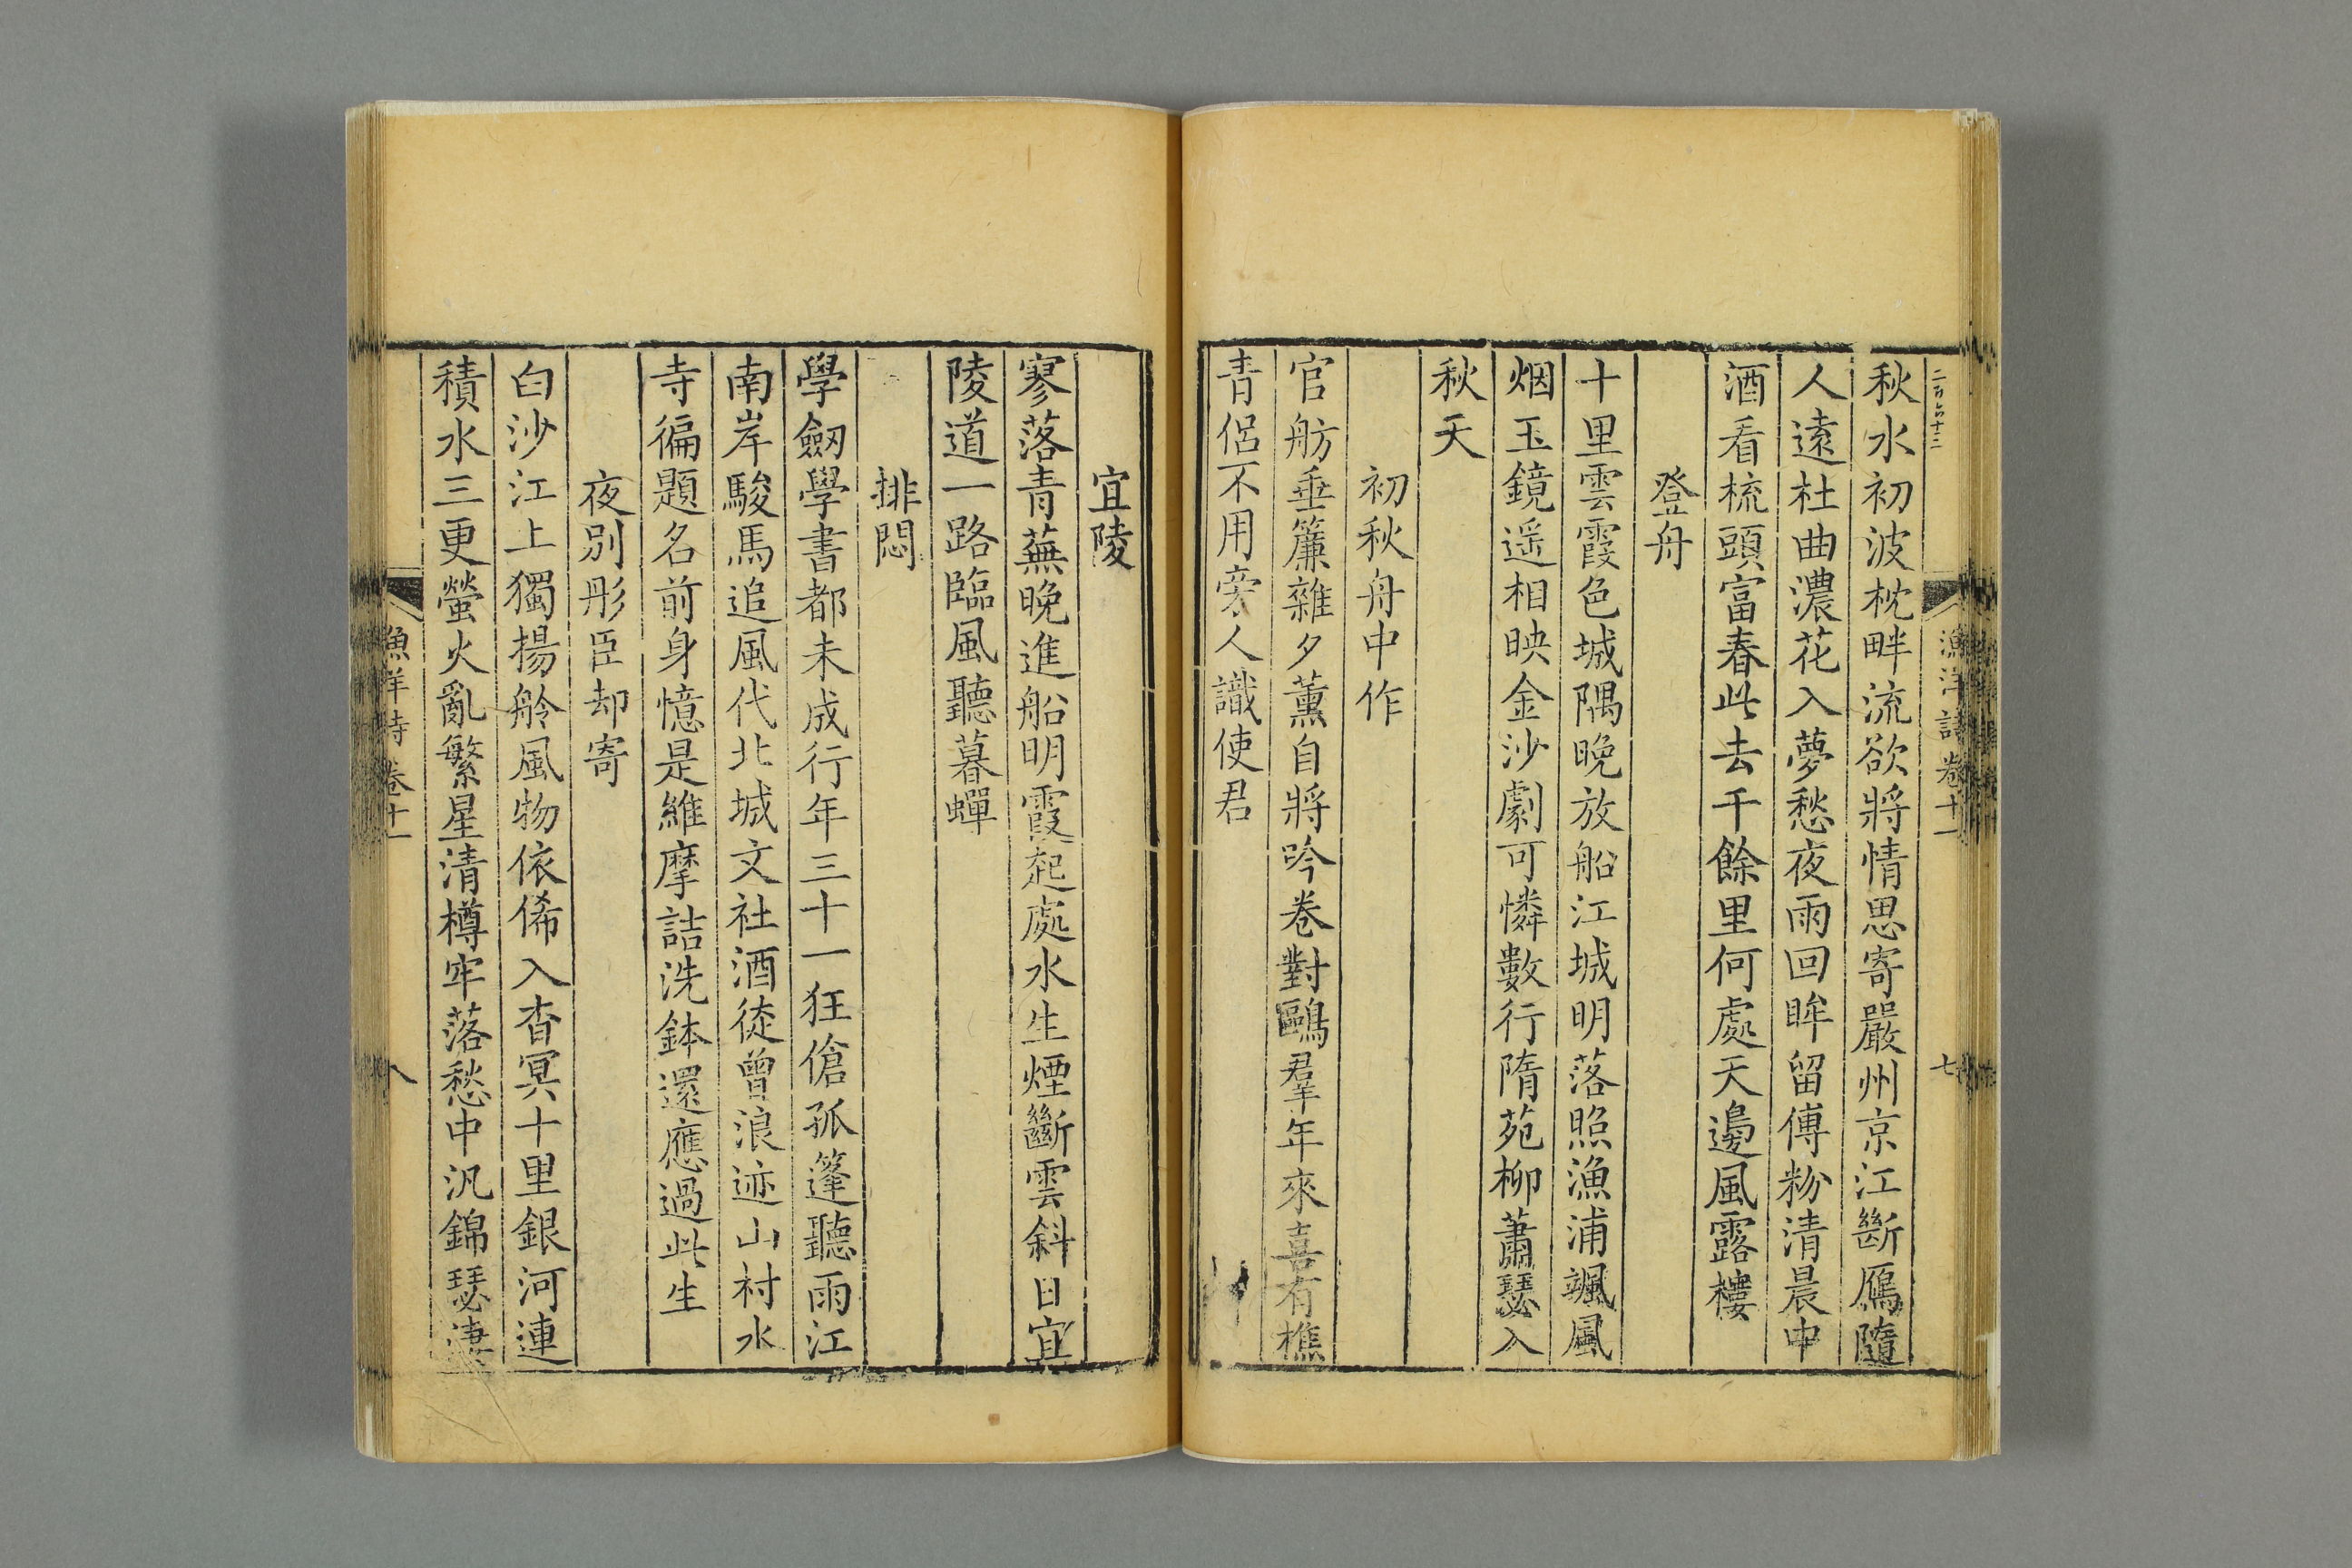 二百六十三
漁洋詩卷十一
七
秋水初波枕畔流欲將情思寄嚴州京江斷鴈隨
人遠杜曲濃花入夢愁夜雨回眸留傅粉清晨中
酒看梳頭富春此去千餘里何處天邊風露樓
登舟
十里雲霞色城隅晚放船江城明落照漁浦颯風
烟玉鏡遥相映金沙劇可憐數行隋苑柳蕭瑟入
秋天
初秋舟中作
官舫垂簾雜夕薰自將吟卷對鷗羣年來喜有樵
青侶不用旁人識使君
宜陵
寥落青蕪晚進船明霞起處水生煙斷雲斜日宜
陵道一路臨風聽暮蟬
排悶
學劒學書都未成行年三十一狂傖孤篷聽雨江
南岸駿馬追風代北城文社酒徒曾浪迹山村水
寺徧題名前身憶是維摩詰洗鉢還應過此生
夜別彤臣却寄
白沙江上獨揚舲風物依俙入杳冥十里銀河連
積水三更螢火亂繁星清樽牢落愁中汎錦瑟淒
漁洋詩卷十一
八